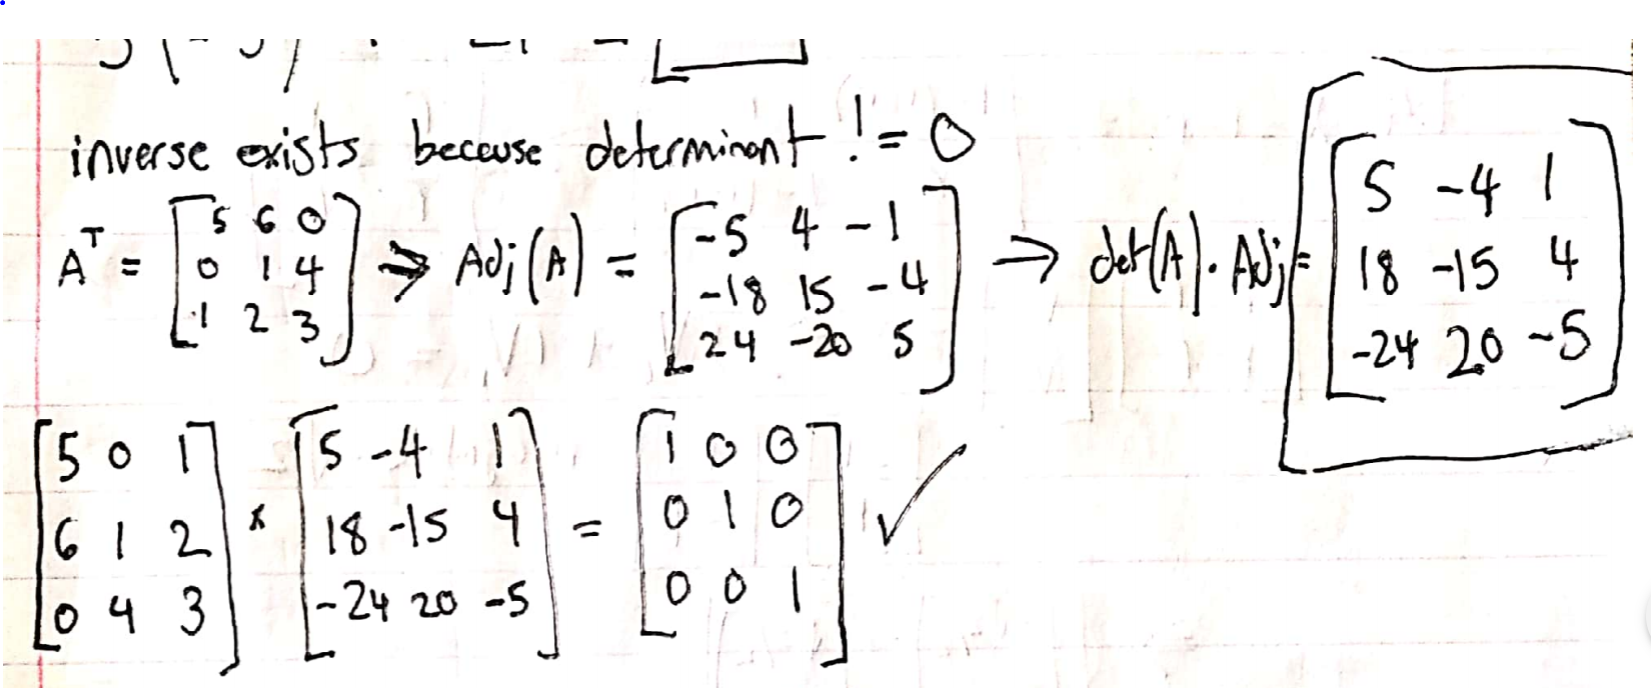 inverse exists because determinant != 0
A^T = [5 6 0; 0 1 4; 1 2 3] => Adj(A) = [-5 4 -1; -18 15 -4; 24 -20 5] → det(A). Adj = [5 -4 1; 18 -15 4; -24 20 -5]
[5 0 1; 6 1 2; 0 4 3] * [5 -4 1; 18 -15 4; -24 20 -5] = [1 0 0; 0 1 0; 0 0 1] ✓